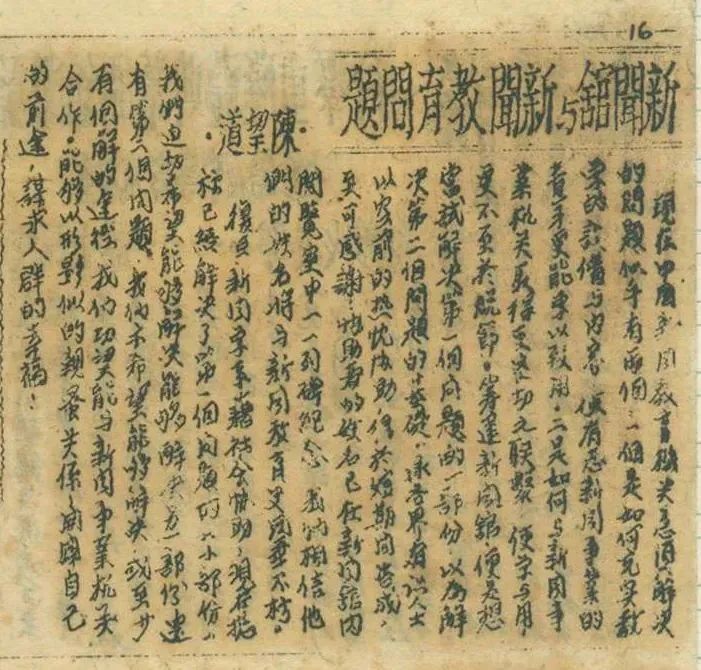 16
新聞舘与新聞教育問題
·陳望道·
現在中国新聞教育機关急須解决
的問題似乎有兩個：一個是如何充実教
学的設備与内容，使有志新聞事業的
青年更能学以致用，二是如何与新聞事
業机关取得更密切之联繫，使学与用
更不至於脱節。籌建新聞舘，便是想
嘗試解决第一個問題的一部份，以為解
决第二個問題的基礎。承各界有识人士
以空前的热忱協助，得於短期間告成，
更可感謝。協助者的姓名已在新聞舘内
閱覧室中一一列碑紀念，我們相信他
們的姓名將与新聞教育史永垂不朽。
復旦新聞学系藉社会協助，現在總
祘已經解决了第一個問題的一小部份。
我們迫切希望能够解决能够解决另一部份，還
有第二個問題，我們亦希望能够解决，或至少
有個解的途徑。我們切望能与新聞事業机关
合作，能够以形影似的親蜜关係，開闢自己
的前途，謀求人群的幸福！